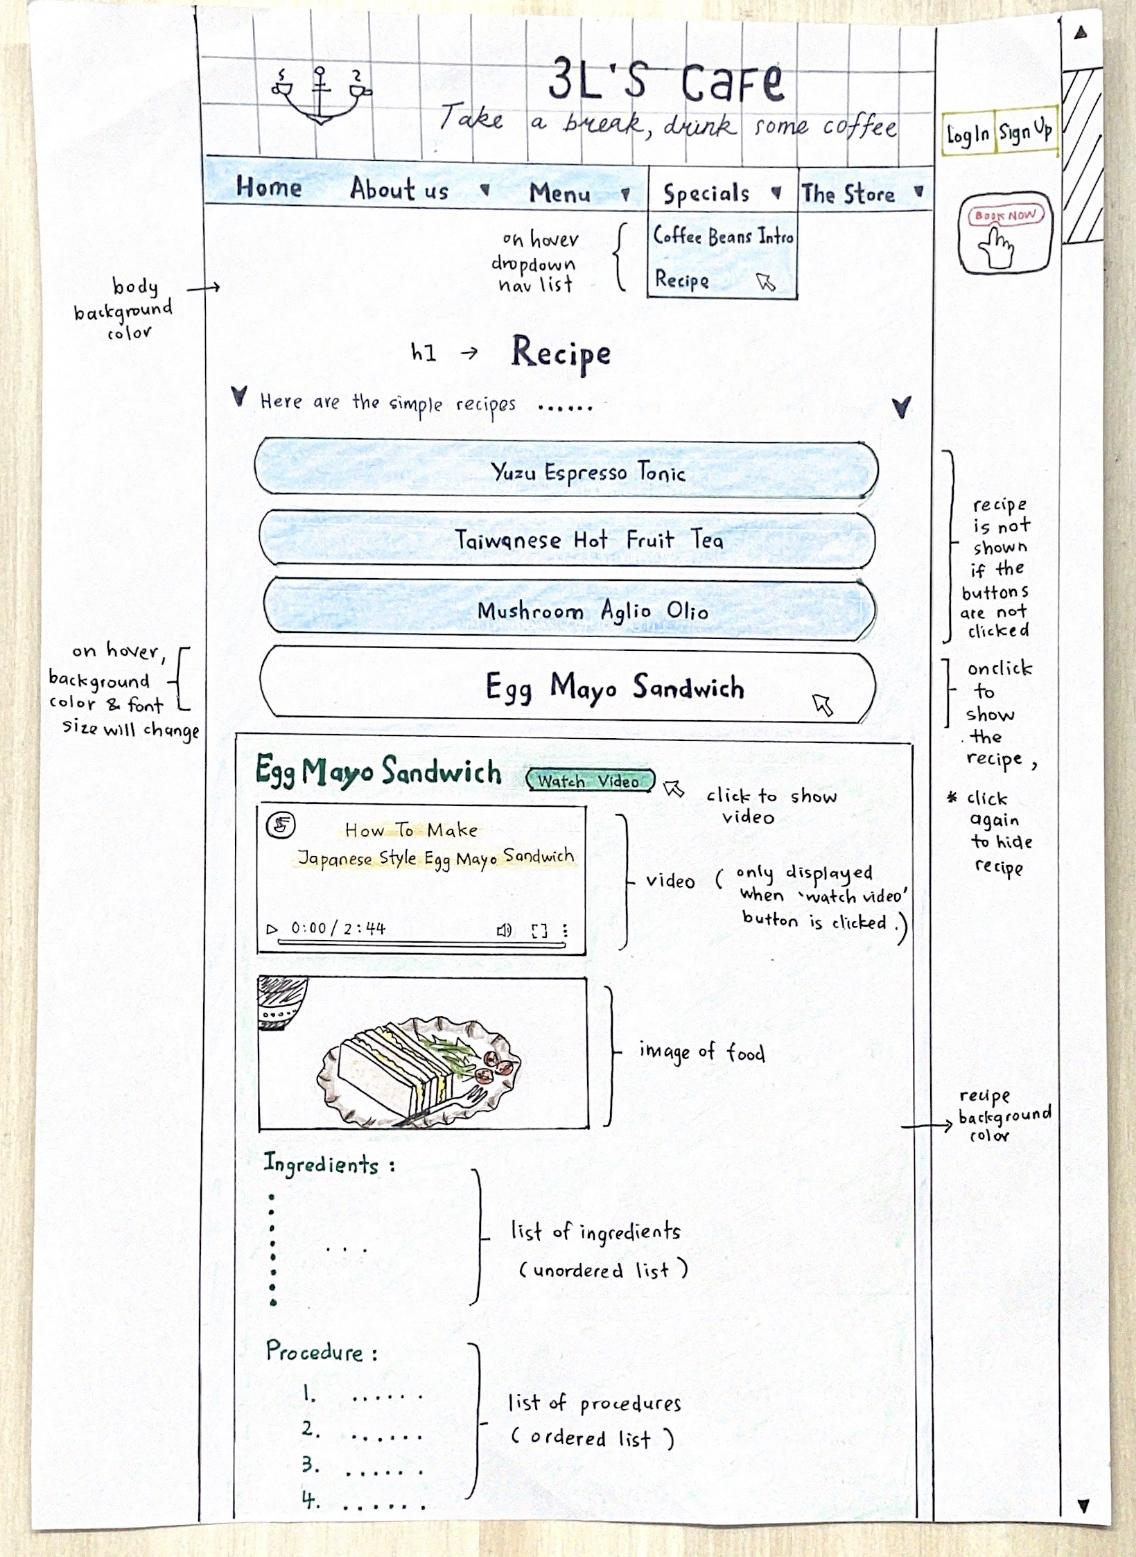 3L'S CaFe
Take a break, drink some coffee
Log In Sign Up
Home About us Menu Specials The Store
BOOK NOW
Coffee Beans Intro
Recipe
on hover
dropdown
nav list
body
background
color
h1 → Recipe
Here are the simple recipes ......
Yuzu Espresso Tonic
Taiwanese Hot Fruit Tea
Mushroom Aglio Olio
Egg Mayo Sandwich
recipe
is not
shown
if the
buttons
are not
clicked
on hover,
background
color & font
size will change
onclick
to
show
the
recipe,
* click
again
to hide
recipe
Egg Mayo Sandwich
Watch Video
click to show
video
How To Make
Japanese Style Egg Mayo Sandwich
0:00 / 2:44
video ( only displayed
when 'watch video'
button is clicked.)
image of food
recipe
background
color
Ingredients :
...
list of ingredients
(unordered list)
Procedure :
1. ......
2. ......
3. ......
4. ......
list of procedures
( ordered list )